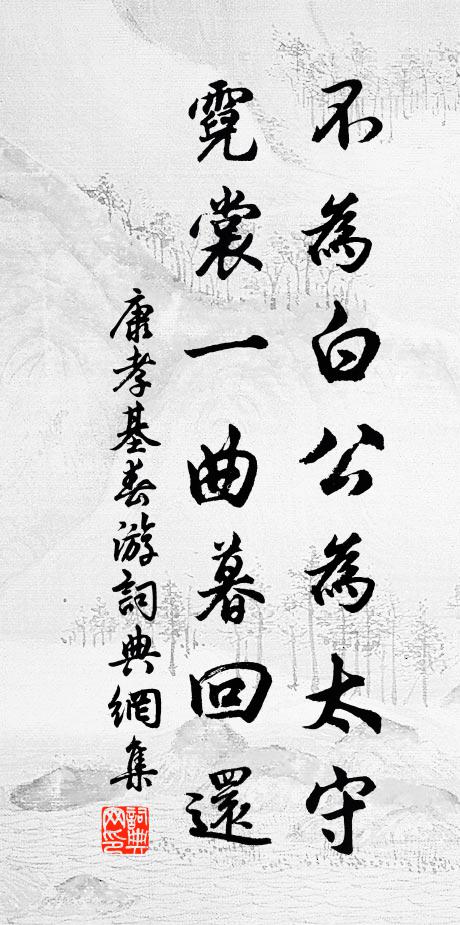 不為白公為太守
霓裳一曲暮回還
康孝基春游詞典網集
詞典網印